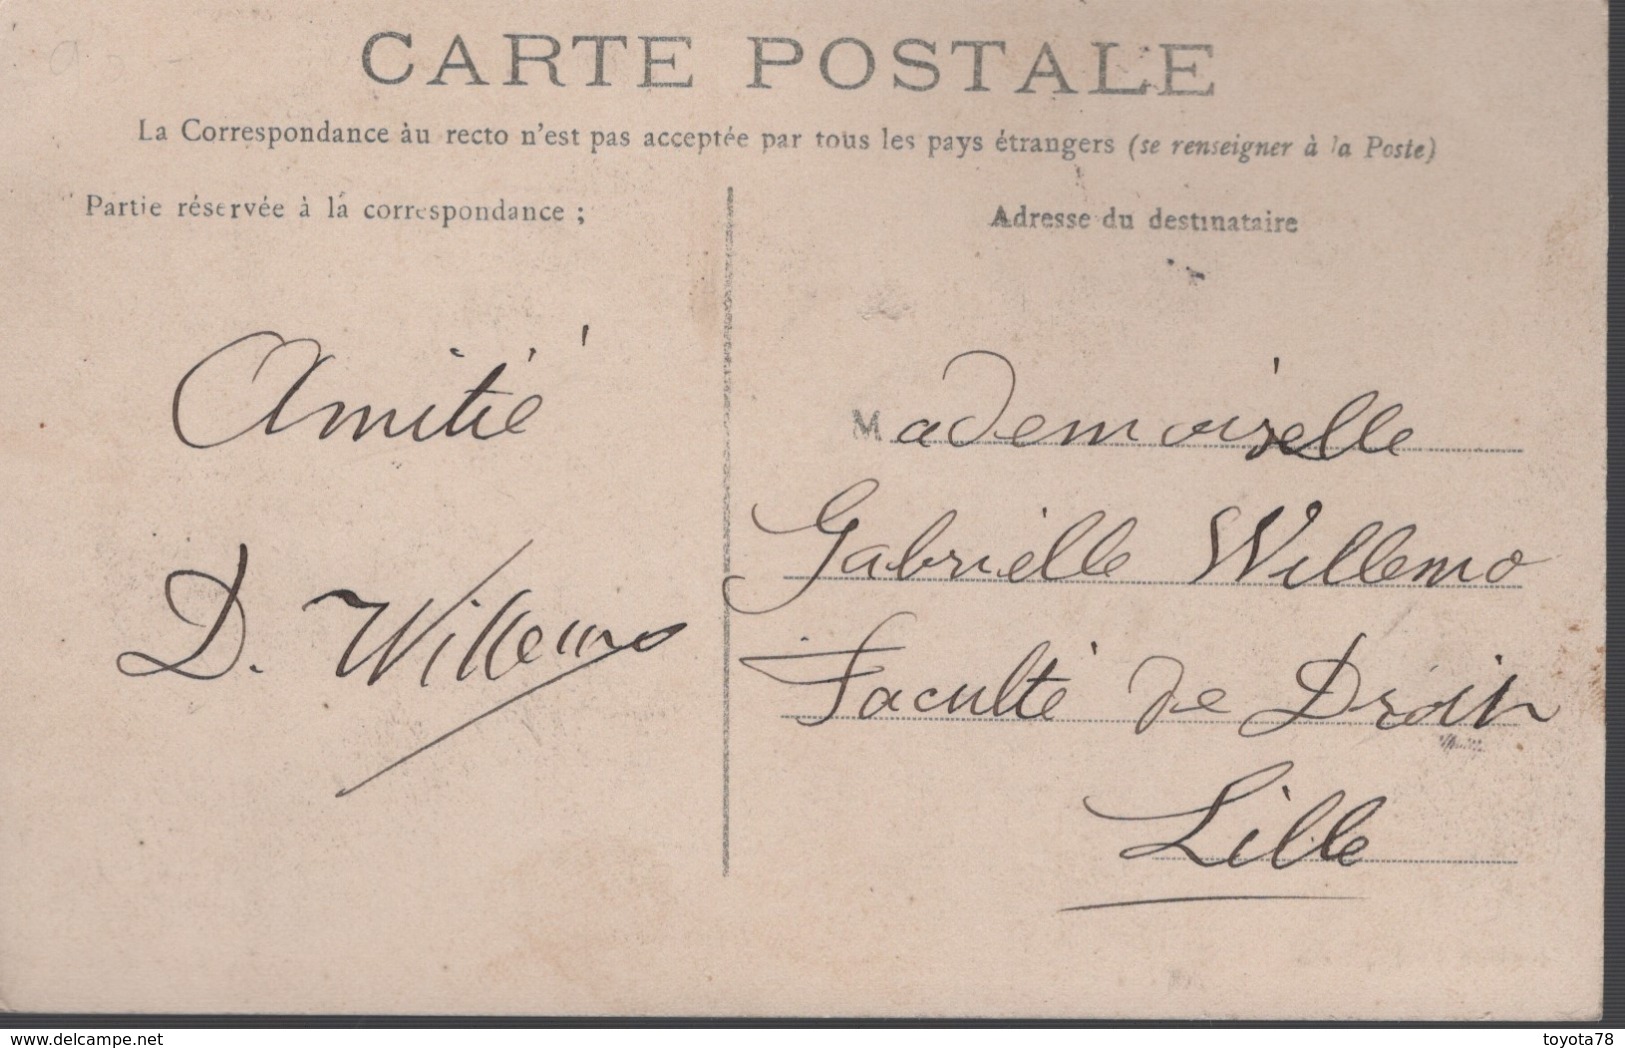 CARTE POSTALE
La Correspondance àu recto n'est pas acceptée par tous les pays étrangers (se renseigner à la Poste)
Partie réservée à la correspondance ;
Adresse du destinataire
Amitié
D. Willems
Mademoiselle
Gabrielle Willems
Faculté de Droit
Lille
www.delcampe.net
toyota78